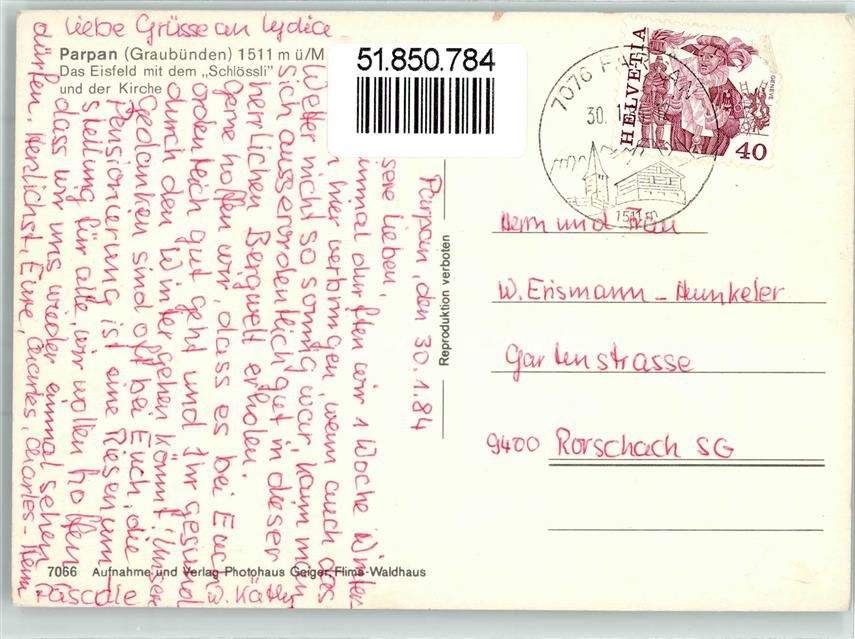 Liebe Grüsse an Lydia
Parpan (Graubünden) 1511 m ü/M
Das Eisfeld mit dem „Schlössli"
und der Kirche
51.850.784
7076 PARPAN
30. 1.
1511 m
HELVETIA
GENEVE
40
Parpan, den 30.1.84
sere Lieben,
inmal durften wir 1 Woche Winter-
hier verbringen, wenn auch das
Wetter nicht so sonnig war, kann man
sich ausserordentlich gut in dieser
herrlichen Bergwelt erholen.
Gerne hoffen wir, dass es bei Euch
ordentlich gut geht und Ihr gesund
durch den Winter gehen könnt! Unsere
Gedanken sind oft bei Euch, die
Pensionierung ist eine Riesenum
stellung für alle, wir wollen hoffen
dass wir uns wieder einmal sehen
dürfen. Herzlichst, Eure, Charles, Charles-
Pascale
Reproduktion verboten
Herrn und Frau
W. Erismann-Hunkeler
Gartenstrasse
9400 Rorschach SG
7066 Aufnahme und Verlag Photohaus Geiger, Flims-Waldhaus